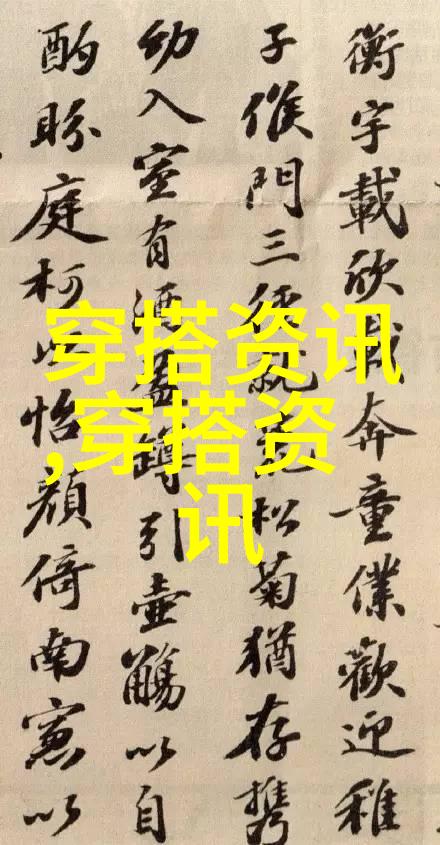 衡宇載欣載奔童僕歡迎稚
子候門三徑就松菊猶存携
幼入室有酒盈樽引壺觴以自
酌眄庭柯以怡顔倚南窓以
穿搭资讯
,穿搭资
讯